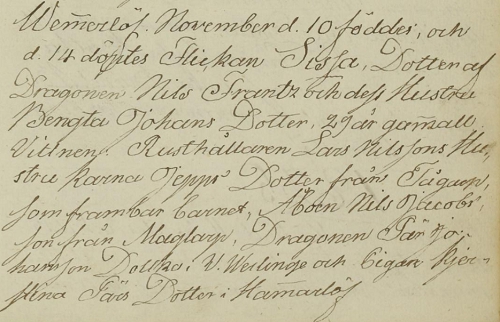 Wem̅erlöf. November d. 10 föddes, och
d. 14 döptes Flickan Sissa, Dotter af
Dragonen Nils Frantz och dess Hustru
Bengta Johans Dotter, 29 år gam̅al.
Vittnen. Rusthållaren Lars Nilssons Hu-
stru Karna Jepps Dotter från Tågarp,
som frambar barnet, Åboen Nils Jacobs-
son från Maglarp, Dragonen Pär Jo-
hansson i V. Werlinge och Pigan Kjer-
stina Pärs Dotter i Ham̅arlöf